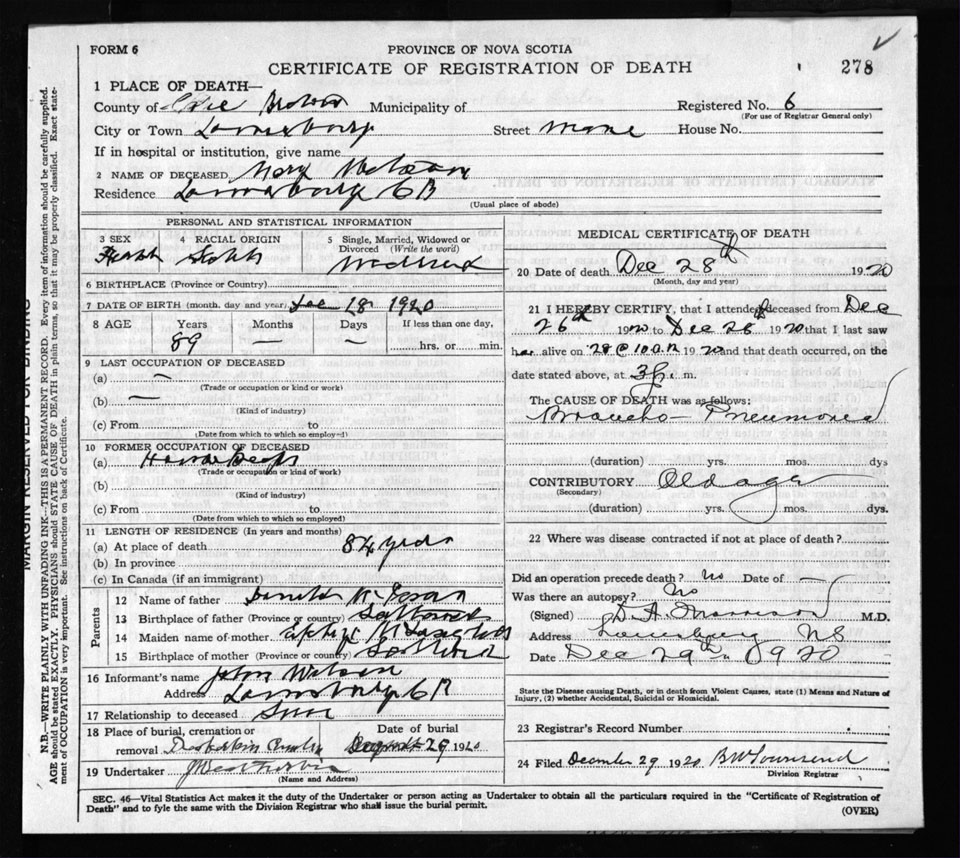 FORM 6
PROVINCE OF NOVA SCOTIA
CERTIFICATE OF REGISTRATION OF DEATH
278
1 PLACE OF DEATH—
County of Cape Breton Municipality of
Registered No. 6
(For use of Registrar General only)
City or Town Louisbourg Street Main House No.
If in hospital or institution, give name
2 NAME OF DECEASED Mary
Residence Louisbourg C B
(Usual place of abode)
PERSONAL AND STATISTICAL INFORMATION
3 SEX 4 RACIAL ORIGIN 5 Single, Married, Widowed or Divorced (Write the word)
Scotch
6 BIRTHPLACE (Province or Country)
7 DATE OF BIRTH (month, day and year) Dec 28 1920
8 AGE Years Months Days If less than one day,
89 — — hrs. or min.
9 LAST OCCUPATION OF DECEASED
(a) —
(Trade or occupation or kind or work)
(b) —
(Kind of industry)
(c) From to
(Date from which to which so employed)
10 FORMER OCCUPATION OF DECEASED
(a)
(Trade or occupation or kind of work)
(b)
(Kind of industry)
(c) From to
(Date from which to which so employed)
11 LENGTH OF RESIDENCE (In years and months)
(a) At place of death 84 years
(b) In province
(c) In Canada (if an immigrant)
Parents
12 Name of father
13 Birthplace of father (Province or country)
14 Maiden name of mother
15 Birthplace of mother (Province or country) Scotland
16 Informant's name John
Address Louisbourg C B
17 Relationship to deceased Son
18 Place of burial, cremation or removal
Date of burial
29 1920
19 Undertaker
(Name and Address)
MEDICAL CERTIFICATE OF DEATH
20 Date of death Dec 28th 1920
(Month, day and year)
21 I HEREBY CERTIFY, that I attended deceased from Dec
26th 1920 to Dec 28 1920 that I last saw
her alive on 28 @ 10 a.m 1920 and that death occurred, on the
date stated above, at 3 p. m.
The CAUSE OF DEATH was as follows:
Broncho- Pneumonia
(duration) yrs. mos. dys
CONTRIBUTORY Old age
(Secondary)
(duration) yrs. mos. dys.
22 Where was disease contracted if not at place of death?
Did an operation precede death? No Date of —
Was there an autopsy? No
(Signed) D. A. Morrison M.D.
Address Louisburg NS
Date Dec 29th 1920
State the Disease causing Death, or in death from Violent Causes, state (1) Means and Nature of
Injury, (2) whether Accidental, Suicidal or Homicidal.
23 Registrar's Record Number
24 Filed December 29 1920 B W Townsend
Division Registrar
SEC. 46—Vital Statistics Act makes it the duty of the Undertaker or person acting as Undertaker to obtain all the particulars required in the "Certificate of Registration of
Death" and to fyle the same with the Division Registrar who shall issue the burial permit.
(OVER)
MARGIN RESERVED FOR BINDING
N.B.—WRITE PLAINLY WITH UNFADING INK—THIS IS A PERMANENT RECORD. Every item of information should be carefully supplied.
AGE should be stated EXACTLY. PHYSICIANS should STATE CAUSE OF DEATH in plain terms, so that it may be properly classified. Exact state-
ment of OCCUPATION is very important. See instructions on back of Certificate.